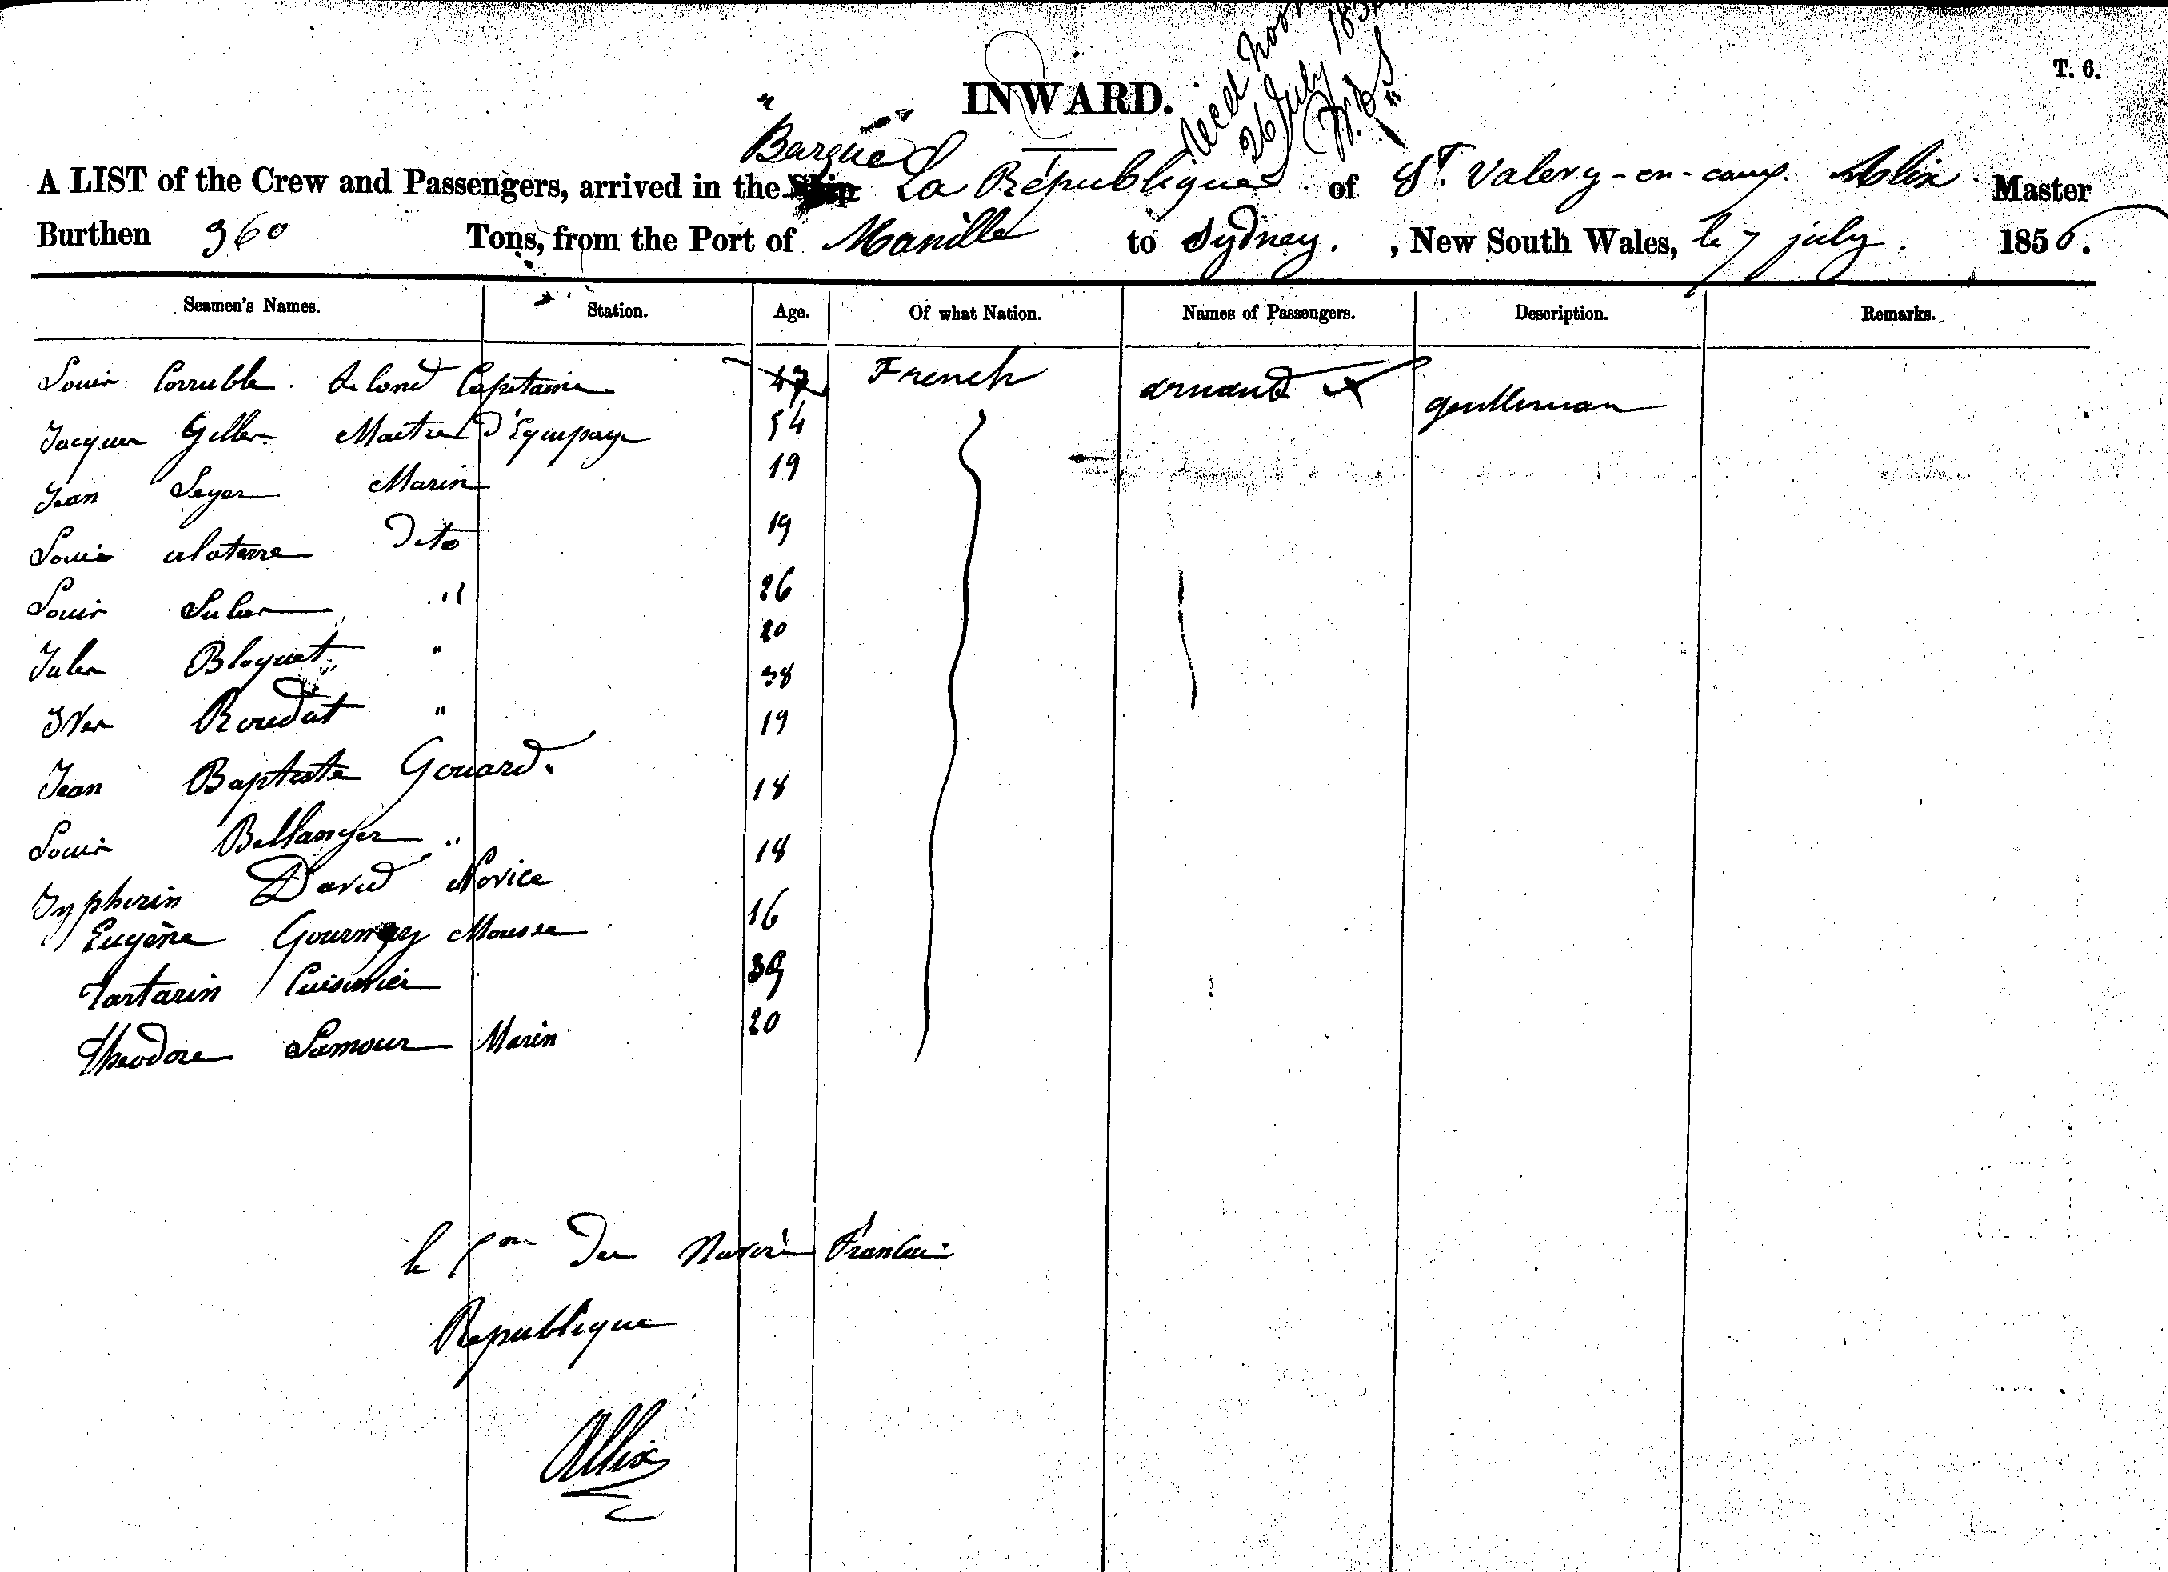 T. 6.
INWARD.
Recd Noon
26 July 185
Barque
A LIST of the Crew and Passengers, arrived in the Ship La République of St. Valery-en-caux. Alix Master
Burthen 360 Tons, from the Port of Manille to Sydney. , New South Wales, le 7 july. 1856.
Seamen's Names. Station. Age. Of what Nation. Names of Passengers. Description. Remarks.
Louis Corruble. Second Capitaine 47 French arnaud gentleman
Jacques Gilles Maitre d'Equipage 54
Jean Leger Marin 19
Louis Dito 19
Louis " 26
Jules Bloquet " 20
Yves Roudot " 38
Jean Baptiste Gouard. 19
Louis Bellanger " 18
Zypherin David Novice 18
Eugène Gournay Mousse 16
Tartarin Cuisinier 39
Théodore Lamour Marin 20
le Cne du Navire Francais
Republique
Allix